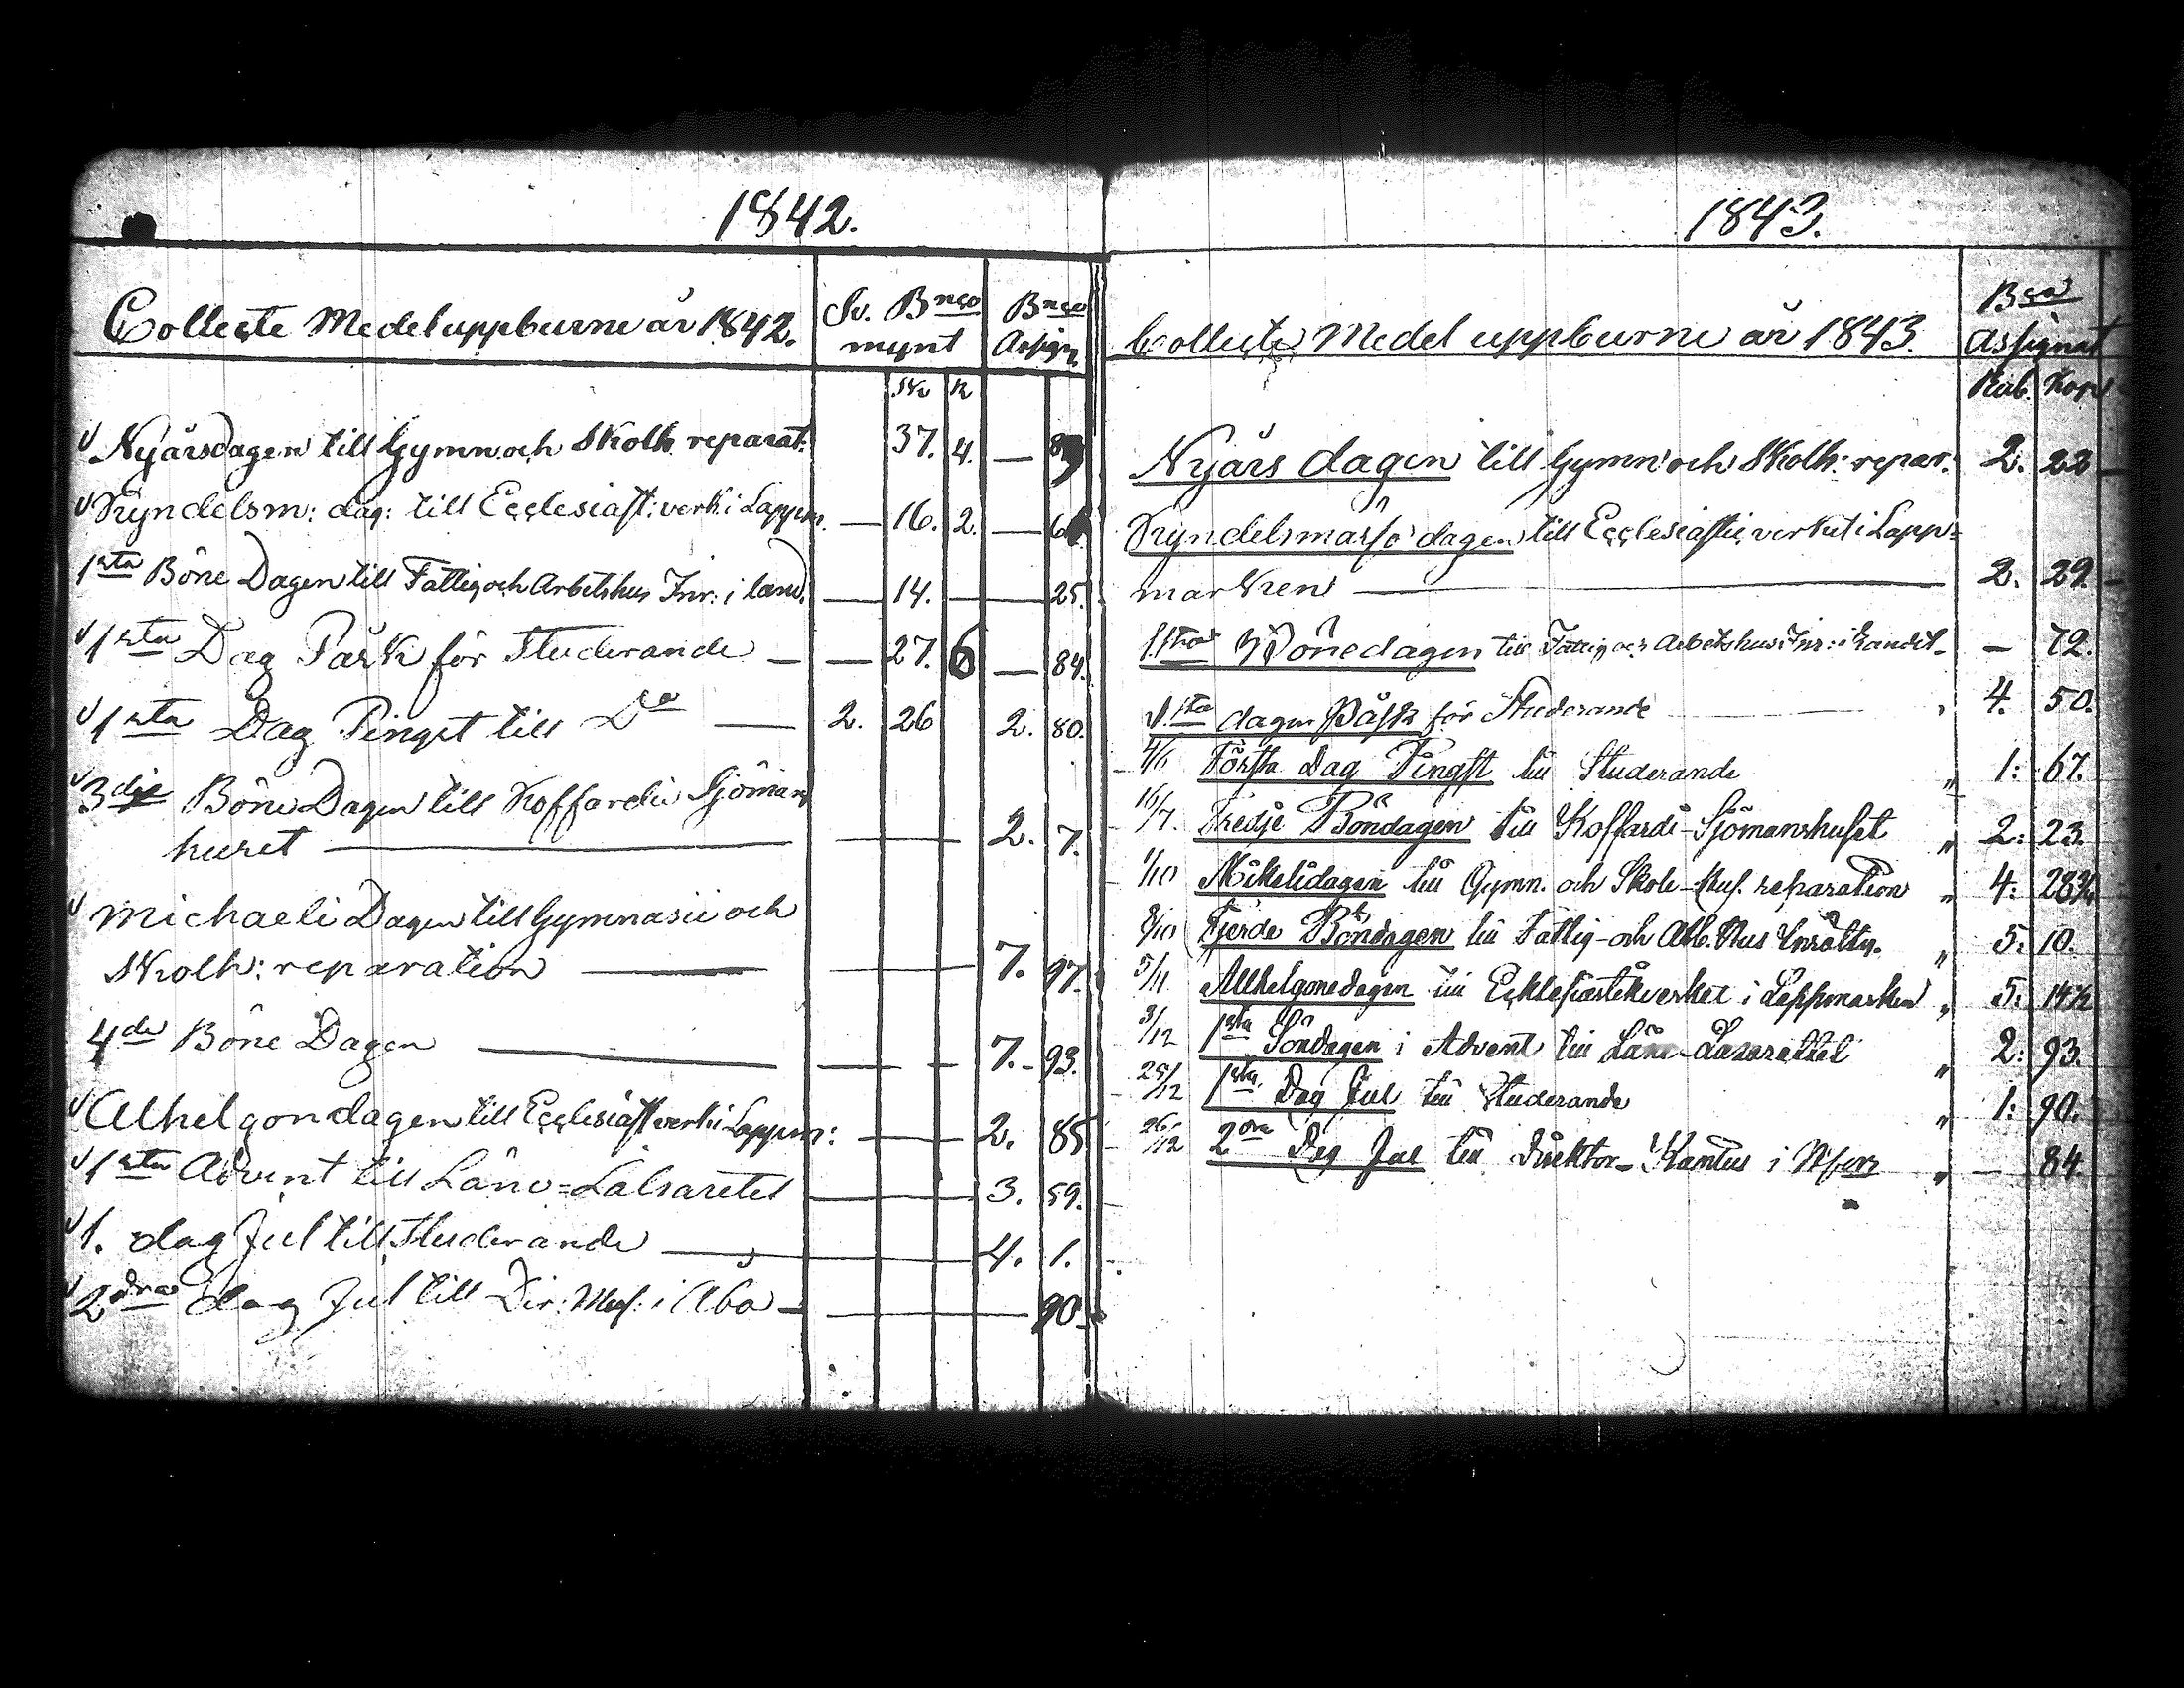 1842.
Collecte Medel uppburne år 1842. Sv. Bnco mynt Bnco Assign
Sk R
Nyårsdagen till Gymn och Skolh. reparat: 37. 4. —
Kyndelsm: dag: till Ecclesiast: verk: i Lappm. — 16. 2. —
1sta Böne Dagen till Fattig och Arbetshus Inr: i land. — 14. — — 25.
1sta Dag Påsk för Studerande — — 27. 6 — 84.
1sta Dag Pingst till Do — 2. 26 2. 80.
3dje Böne Dagen till Koffardie Sjömans
huset — — 2. 7.
Michaeli Dagen till Gymnasii och
Skolh: reparation — — 7. 97.
4de Böne Dagen — — 7. 93.
Alhelgondagen till Ecclesiast verk: i Lappm: — 2. 85
1sta Advent till Läns=Lalsaretet — 3. 59.
1. dag Jul till Studerande — 4. 1.
2dra dag Jul till Dir: Mus: i Åbo — — 90.
1843.
Collecte Medel uppburne år 1843. Bco Assignat
Rub. Kop
Nyårs dagen till Gymn och Skolh: repar. 2. 22
Kyndelsmässo dagen till Ecclesiastic verket i Lapp=
marken — 2. 29.
1sta Bönedagen till Fattig och Arbetshus Inr: i Landet — 72.
1sta dagen Påsk för Studerande 4. 50.
4/6 Första Dag Pingst till Studerande " 1: 67.
16/7. Tredje Böndagen till Koffardi-Sjömanshuset " 2: 23.
1/10 Mikelidagen till Gymn. och Skole-hus. reparation " 4: 28¾
8/10 Fjerde Böndagen till Fattig- och Arb. Hus Inrättn. " 5: 10.
5/11 Allhelgonedagen till Ecklesiastikverket i Lappmarken " 5: 14½
3/12 1sta Söndagen i Advent till Läns-Lazarettet " 2: 93.
25/12 1sta Dag Jul till Studerande " 1: 90.
26/12 2dra Dag Jul till Direktor- Kantus i " — 84